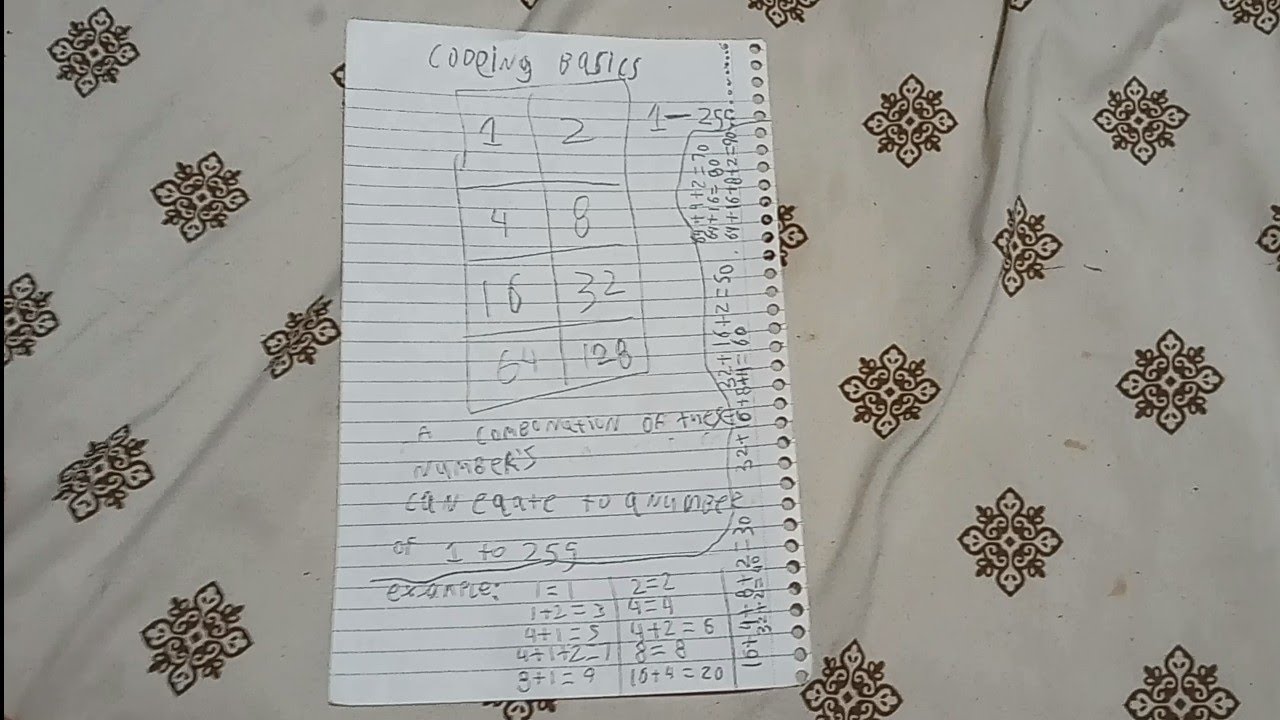 CODEing BASiCS
1 2
1 - 255
4 8
16 32
64 128
A COMBONATION OF THESE
NUMBER'S
CAN EQATE TO A NUMBER
OF 1 to 255
example: 1=1 2=2
1+2=3 4=4
4+1=5 4+2=6
4+1+2=7 8=8
8+1=9 16+4=20
16+4+8+2=30
32+2=40
32+16+2=50
32+16+8+4=60
64+4+2=70
64+16=80
64+16+8+2=90